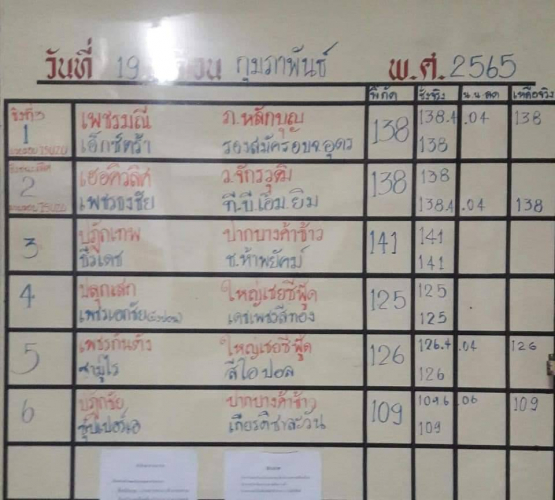 วันที่ 19 เดือน กุมภาพันธ์ พ.ศ. 2565
พิกัด ชั่งจริง น.น.ลด เหลือจริง
1 เพชรมณี ภ.หลักบุญ 138 138.4 .04 138
เอ็กซ์ตร้า รองสมัครอบจ.อุดร 138
2 เฮอคิวลิส ว.จักรวุฒิ 138 138
เพชรธงชัย ที.บี.เอ็ม.ยิม 138.4 .04 138
3 ปฏักเทพ ปากบางค้าข้าว 141 141
ชีวเดช ช.ห้าพยัคฆ์ 141
4 ปลุกเสก ใหญ่เชยซีฟู๊ด 125 125
เพชรเอกชัย เดชเพชรสีทอง 125
5 เพชรกันตัง ใหญ่เชยซีฟู๊ด 126 126.4 .04 126
ซามูไร สีโอปอล 126
6 ปฏักชัย ปากบางค้าข้าว 109 109.6 .06 109
ซุปเปอร์เอ เกียรติชาละวัน 109